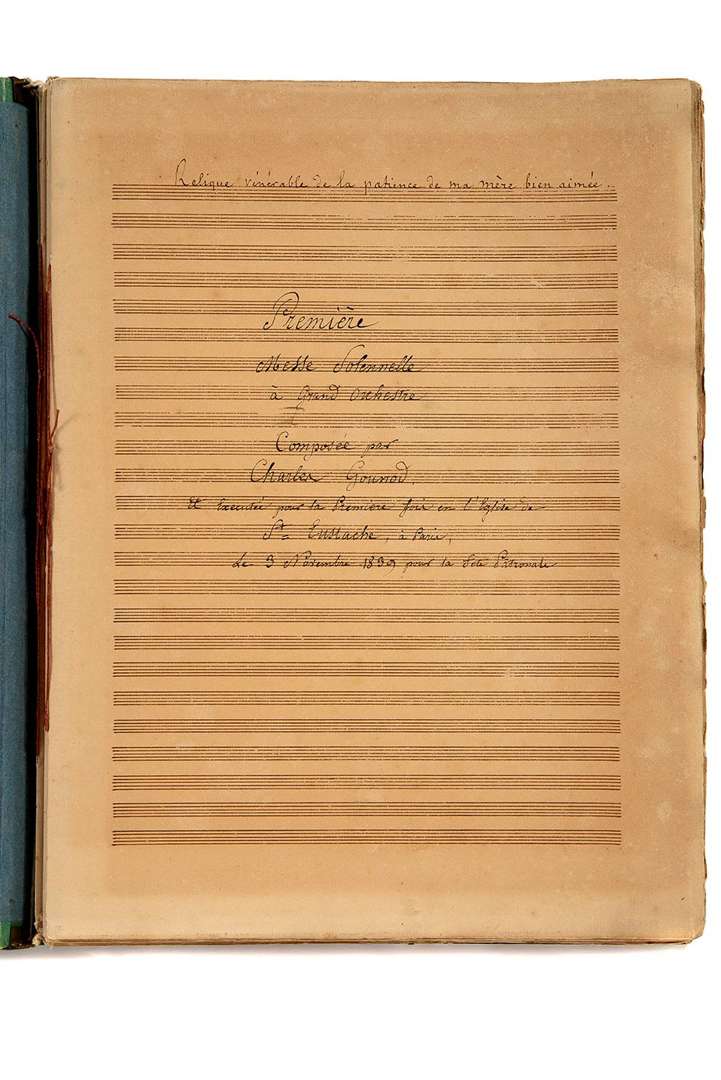 Relique vénérable de la patience de ma mère bien aimée.
Première
Messe Solennelle
à Grand Orchestre
Composée par
Charles Gounod.
et Executée pour la Première fois en l'Eglise de
St= Eustache, à Paris,
Le 3 Novembre 1839 pour la fête Patronale